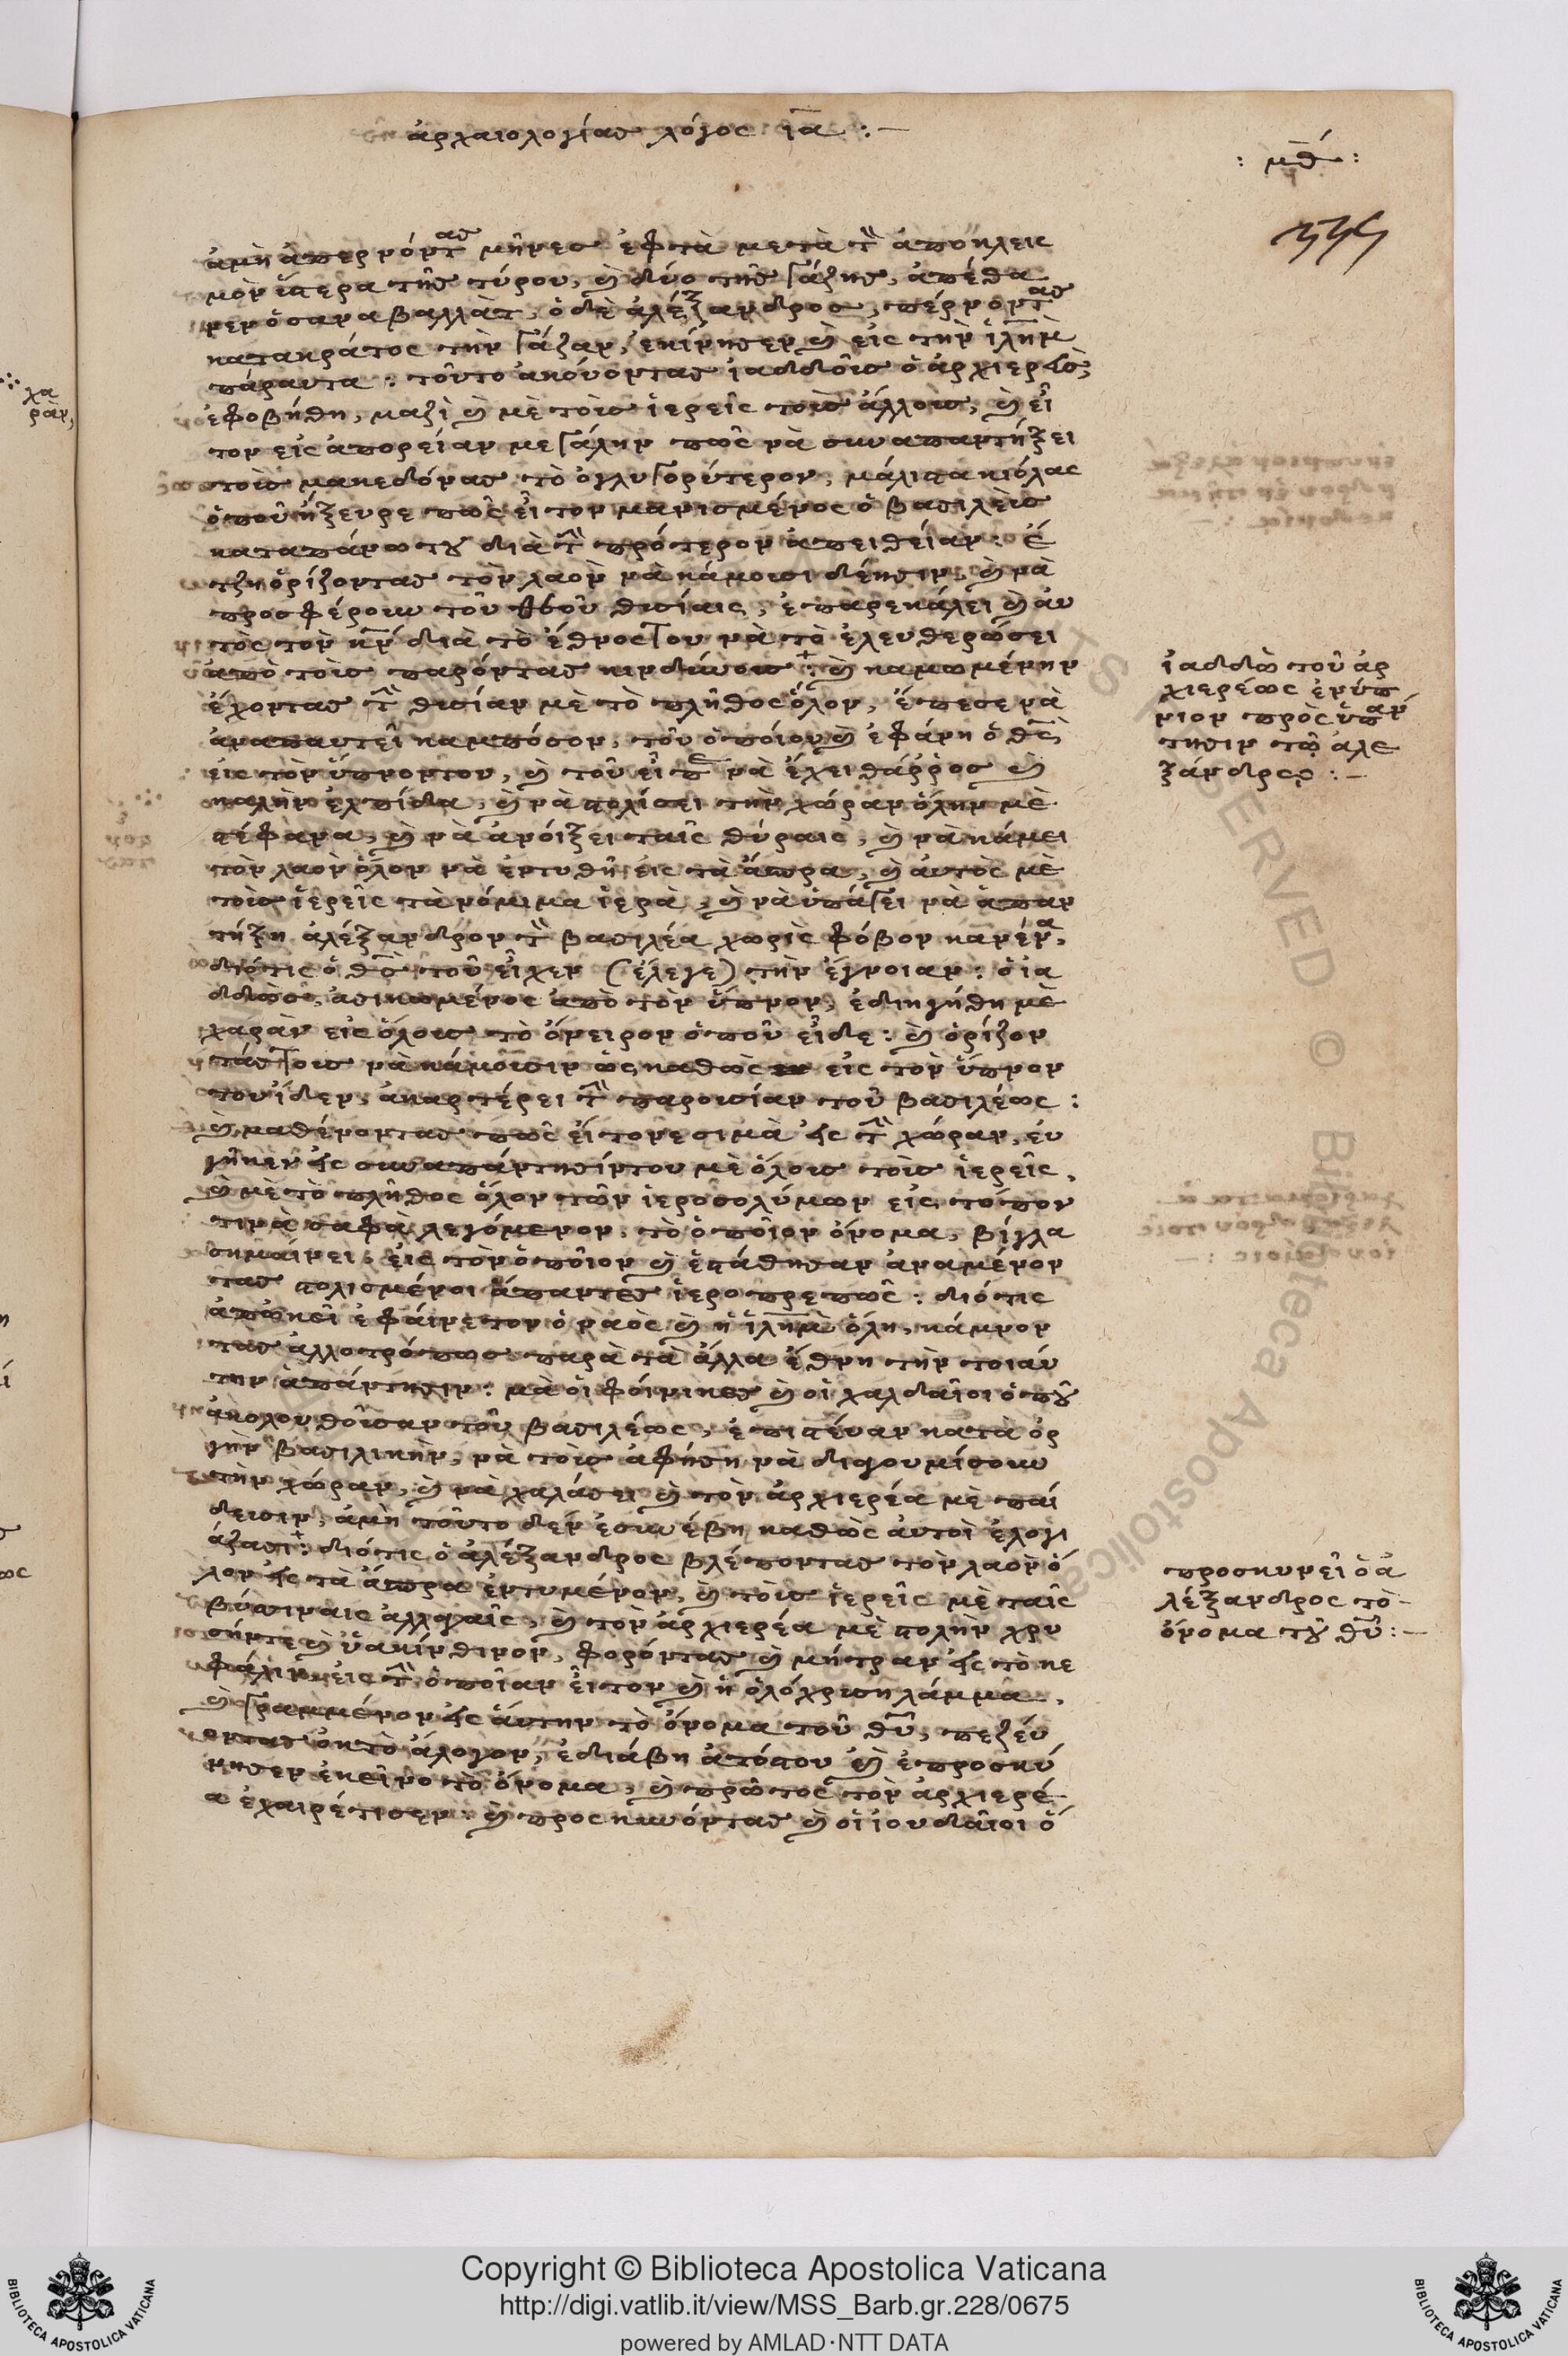 ἀρχαιολογίας λόγος ια :—
: μθ :
ἀμὴ ἀπερνόντας μῆνες ἑφτὰ μετὰ τὴν ἀπόκλεισ
μὸν ὕστερα τῆς τύρου, καὶ δύο τῆς γάζης, ἀπέθα
νεν ὁ σαναβαλλὰτ, ὁ δὲ ἀλέξανδρος, πέρνοντας
κατακράτος τὴν γάζαν, ἐκίνησεν καὶ εἰς τὴν ἱλημ
πάραυτα : τοῦτο ἀκούοντας ἰαδδοῦς ὁ ἀρχιερεὺς,
ἐφοβήθη, μαζὶ καὶ μὲ τοὺς ἱερεῖς τοὺς ἄλλους, καὶ εἶ
τον εἰς ἀπορείαν μεγάλην πῶς νὰ συναπαντήξει
τοὺς μακεδόνας τὸ ὀγλυγορύτερον, μάλιστα κιόλας
ὁποῦ ἤξευρε πῶς εἶτον μανισμένος ὁ βασιλεὺς
καταπάνω του διὰ τὴν πρότερον ἀπειθείαν : ἔ
τζη ὁρίζοντας τὸν λαὸν νὰ κάμουσι δέησιν, καὶ νὰ
προσφέρουν τοῦ θεοῦ θυσίαις, ἐπαρεκάλει καὶ αὐ
τὸς τὸν κν διὰ τὸ ἔθνος του νὰ τὸ ἐλευθερώσει
ἀπὸ τοὺς παρόντας κινδύνους : καὶ καμωμένην
ἔχοντας τὴν θυσίαν μὲ τὸ πλῆθος ὅλον, ἔπεσε νὰ
ἀναπαυτεῖ καμπόσον, τοῦ ὁποίου καὶ ἐφάνη ὁ θς
εἰς τὸν ὕπνον του, καὶ τοῦ εἶπε νὰ ἔχει θάρρος καὶ
καλὴν ἐλπίδα, καὶ νὰ στολίσει τὴν χώραν ὅλην μὲ
στέφανα, καὶ νὰ ἀνοίξει ταῖς θύραις, καὶ νὰ κάμει
τὸν λαὸν ὅλον νὰ ἐντυθῆ εἰς τὰ ἄσπρα, καὶ αὐτὸς μὲ
τοὺς ἱερεῖς τὰ νόμιμα ἱερὰ, καὶ νὰ ὑπάγει νὰ ἀπαν
τήξη ἀλέξανδρον τὸν βασιλέα χωρὶς φόβον κανένα,
διότις ὁ θς τοῦ εἶχεν (ἔλεγε) τὴν ἔγνοιαν : ὁ ἰα
δδοῦς, ἀσικωμένος ἀπὸ τὸν ὕπνον, ἐδιηγήθη μὲ
χαρὰν εἰς ὅλους τὸ ὄνειρον ὁποῦ εἶδε : καὶ ὁρίζον
τάς τους νὰ κάμουσιν ὡς καθὼς εἰς τὸν ὕπνον
του ἴδεν, ἀκαρτέρει τὴν παρουσίαν τοῦ βασιλέως :
καὶ μαθένοντας πῶς εἶτονε σιμὰ εἰς τὴν χώραν, εὐ
γῆκεν εἰς συναπάντησίν του μὲ ὅλους τοὺς ἱερεῖς,
καὶ μὲ τὸ πλῆθος ὅλον τῶν ἱεροσολύμων εἰς τόπον
τινὰ σαφὰ λεγόμενον, τὸ ὁποῖον ὄνομα, βίγλα
σημαίνει, εἰς τὸν ὁποῖον καὶ ἐστάθησαν ἀναμένον
τας στολισμένοι ἅπαντες ἱεροπρεπῶς : διότις
ἀπὼκεῖ ἐφαίνετον ὁ ναὸς καὶ ἡ ἱλημ ὅλη, κάμνον
τας ἀλλοτρόπως παρὰ τὰ ἄλλα ἔθνη τὴν τοιαύ
την ἀπάντησιν : μὰ οἱ φοίνικες καὶ οἱ χαλδαῖοι ὁποῦ
ἀκολουθοῦσαν τοῦ βασιλέως, ἐπιστέυαν κατὰ ὀρ
γὴν βασιλικὴν, νὰ τοὺς ἀφήση νὰ διαγουμίσουν
τὴν χώραν, καὶ νὰ χαλάσει καὶ τὸν ἀρχιερέα μὲ παί
δευσιν, ἀμὴ τοῦτο δὲν ἐσυνέβη καθὼς αὐτοὶ ἐλογι
άζασι : διότις ὁ ἀλέξανδρος βλέποντας τὸν λαὸν ὅ
λον εἰς τὰ ἄσπρα ἐντυμένον, καὶ τοὺς ἱερεῖς μὲ ταῖς
βύσιναις ἀλλαγαῖς, καὶ τὸν ἀρχιερέα μὲ στολὴν χρυ
σήντε καὶ ὑακίνθινον, φορόντας καὶ μήτραν εἰς τὸ κε
φάλιν, εἰς τὴν ὁποῖαν εἶτον καὶ ἡ ὁλόχρυση λάμμα,
καὶ γραμμένον εἰς αὐτην τὸ ὄνομα τοῦ θυ, πεζεύ
οντας ἐκ τὸ ἄλογον, ἐδιάβη ἀτόστου καὶ ἐπροσκύ
νησεν ἐκεῖνο τὸ ὄνομα, καὶ πρῶτος τὸν ἀρχιερέ
α ἐχαιρέτισεν : καὶ προσκυνόντας καὶ οἱ ἰουδαῖοι ὅ
χα
ρὰν,
ἰαδδοῦ τοῦ ἀρ
χιερέως ἐνύπ
νιον πρὸς ὑπάν
τησιν τῷ ἀλε
ξάνδρῳ :—
προσκυνεῖ ὁ ἀ
λέξανδρος τὸ
ὄνομα τοῦ θυ :—
Copyright © Biblioteca Apostolica Vaticana
http://digi.vatlib.it/view/MSS_Barb.gr.228/0675
powered by AMLAD·NTT DATA
BIBLIOTECA APOSTOLICA VATICANA
BIBLIOTECA APOSTOLICA VATICANA